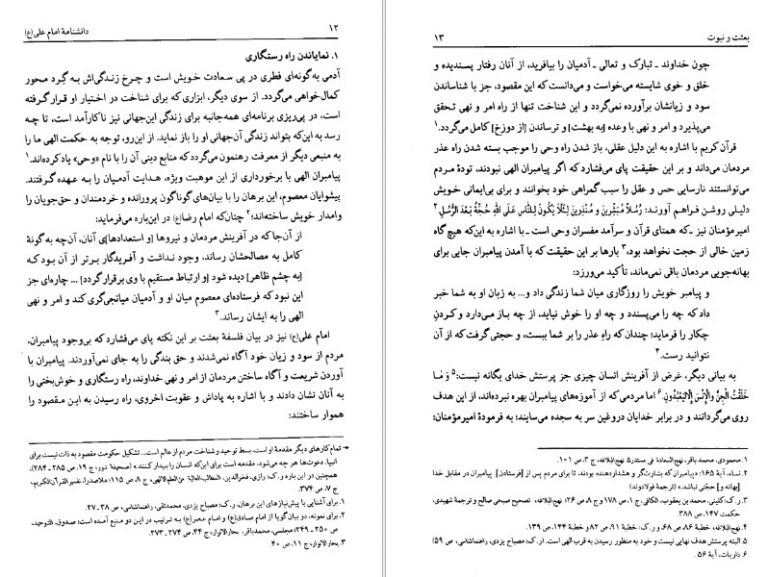 ۱۲ دانشنامهٔ امام علی(ع)
۱. نمایاندن راه رستگاری
آدمی به‌گونه‌ای فطری در پی سعادت خویش است و چرخ زندگی‌اش به گِرد محور
کمال‌خواهی می‌گردد. از سوی دیگر، ابزاری که برای شناخت در اختیار او قرار گرفته
است، در پی‌ریزی برنامه‌ای همه‌جانبه برای زندگی این‌جهانی نیز ناکارآمد است، تا چه
رسد به این‌که بتواند زندگی آن‌جهانی او را باز نماید. از این‌رو، توجه به حکمت الهی ما را
به منبعی دیگر از معرفت رهنمون می‌گردد که منابع دینی آن را با نام «وحی» یاد کرده‌اند.۱
پیامبران الهی با برخورداری از این موهبت ویژه، هدایت آدمیان را به عهده گرفتند.
پیشوایان معصوم، این برهان را با بیان‌های گوناگون پرورانده و خردمندان و حق‌جویان را
وامدار خویش ساخته‌اند؛۲ چنان‌که امام رضا(ع) در این‌باره می‌فرماید:
از آن‌جا که در آفرینش مردمان و نیروها [و استعدادها]ی آنان، آن‌چه به گونهٔ
کامل به مصالحشان رساند، وجود نداشت و آفریدگار برتر از آن بود که
[به چشم ظاهر] دیده شود [و ارتباط مستقیم با وی برقرار گردد] ... چاره‌ای جز
این نبود که فرستاده‌ای معصوم میان او و آدمیان میانجی‌گری کند و امر و نهی
الهی را به ایشان رساند.۳
امام علی(ع) نیز در بیان فلسفهٔ بعثت بر این نکته پای می‌فشارد که بی‌وجود پیامبران،
مردم از سود و زیان خود آگاه نمی‌شدند و حق بندگی را به جای نمی‌آوردند. پیامبران با
آوردن شریعت و آگاه ساختن مردمان از امر و نهی خداوند، راه رستگاری و خوش‌بختی را
به آنان نشان دادند و با اشاره به پاداش و عقوبت اخروی، راه رسیدن به این مقصود را
هموار ساختند:
→ تمام کارهای دیگر مقدمهٔ او است، بسط توحید و شناخت مردم از عالم است... تشکیل حکومت مقصود به ذات نیست برای
انبیا. دعوت‌ها هر چه می‌شود، مقدمه است برای این‌که انسان را بیدار کنند.» (صحیفهٔ نور، ج ۱۹، ص ۲۸۵ ـ ۲۸۴)،
همچنین در این باره ر. ک: رازی، فخرالدین، المطالب العالیة من العلم الالهی، ج ۸، ص ۱۱۵؛ ملاصدرا، تفسیر القرآن الکریم،
ج ۷، ص ۳۷۴.
۱. برای آشنایی با پیش‌نیازهای این برهان، ر. ک: مصباح یزدی، محمدتقی، راهنماشناسی، ص ۳۸ ـ ۲۷.
۲. برای نمونه، دو بیان گویا از امام صادق(ع) و امام عصر(ع) به ترتیب در این دو منبع آمده است: صدوق، التوحید،
ص ۲۵۰ ـ ۲۴۹؛ مجلسی، محمدباقر، بحارالانوار، ج ۴۴، ص ۲۷۴ ـ ۲۷۳.
۳. بحارالانوار، ج ۱۱، ص ۴۰.
بعثت و نبوت ۱۳
چون خداوند ـ تبارک و تعالی ـ آدمیان را بیافرید، از آنان رفتار پسندیده و
خلق و خوی شایسته می‌خواست و می‌دانست که این مقصود، جز با شناساندن
سود و زیانشان برآورده نمی‌گردد و این شناخت تنها از راه امر و نهی تحقق
می‌پذیرد و امر و نهی با وعده [به بهشت] و ترساندن [از دوزخ] کامل می‌گردد.۱
قرآن کریم با اشاره به این دلیل عقلی، باز شدن راه وحی را موجب بسته شدن راه عذر
مردمان می‌داند و بر این حقیقت پای می‌فشارد که اگر پیامبران الهی نبودند، تودهٔ مردم
می‌توانستند نارسایی حس و عقل را سبب گمراهی خود بخوانند و برای بی‌ایمانی خویش
دلیلی روشن فراهم آورند: رُسُلاً مُبَشِّرینَ وَ مُنذِرینَ لِئَلاّ یَکُونَ لِلنّاسِ عَلَی اللّٰهِ حُجَّةٌ بَعْدَ الرُّسُلِ.۲
امیرمؤمنان نیز ـ که همتای قرآن و سرآمد مفسران وحی است ـ با اشاره به این‌که هیچ‌گاه
زمین خالی از حجت نخواهد بود،۳ بارها بر این حقیقت که با آمدن پیامبران جایی برای
بهانه‌جویی مردمان باقی نمی‌ماند، تأکید می‌ورزد:
و پیامبر خویش را روزگاری میان شما زندگی داد و... به زبان او به شما خبر
داد که چه را می‌پسندد و چه او را خوش نیاید، از چه باز می‌دارد و کردن
چکار را فرماید؛ چندان که راهِ عذر را بر شما ببست، و حجتی گرفت که از آن
نتوانید رست.۴
به بیانی دیگر، غرض از آفرینش انسان چیزی جز پرستش خدای یگانه نیست:۵ وَ مَا
خَلَقْتُ الْجِنَّ وَالْإِنْسَ إِلَّا لِیَعْبُدُونِ.۶ اما مردمی که از آموزه‌های پیامبران بهره نبرده‌اند، از این هدف
روی می‌گردانند و در برابر خدایان دروغین سر به سجده می‌سایند؛ به فرمودهٔ امیرمؤمنان:
۱. محمودی، محمد باقر، نهج السعادة فی مستدرک نهج‌البلاغه، ج ۳، ص ۱۰۱.
۲. نساء، آیهٔ ۱۶۵: «پیامبران که بشارت‌گر و هشداردهنده بودند، تا برای مردم پس از [فرستادن] پیامبران در مقابل خدا
[بهانه و] حجتی نباشد.» (ترجمهٔ فولادوند)
۳. ر. ک: کلینی، محمد بن یعقوب، الکافی، ج ۱، ص ۱۷۸ و ج ۸، ص ۲۶؛ نهج‌البلاغه، تصحیح صبحی صالح و ترجمهٔ شهیدی،
حکمت ۱۴۷، ص ۳۸۸.
۴. نهج‌البلاغه، خطبهٔ ۸۶، ص ۶۸. و ر. ک: خطبهٔ ۹۱، ص ۸۲ و خطبهٔ ۱۴۴، ص ۱۳۹.
۵. البته پرستش هدف نهایی نیست و خود به منظور رسیدن به قرب الهی است. (ر. ک: مصباح یزدی، راهنماشناسی، ص ۵۹)
۶. ذاریات، آیهٔ ۵۶.